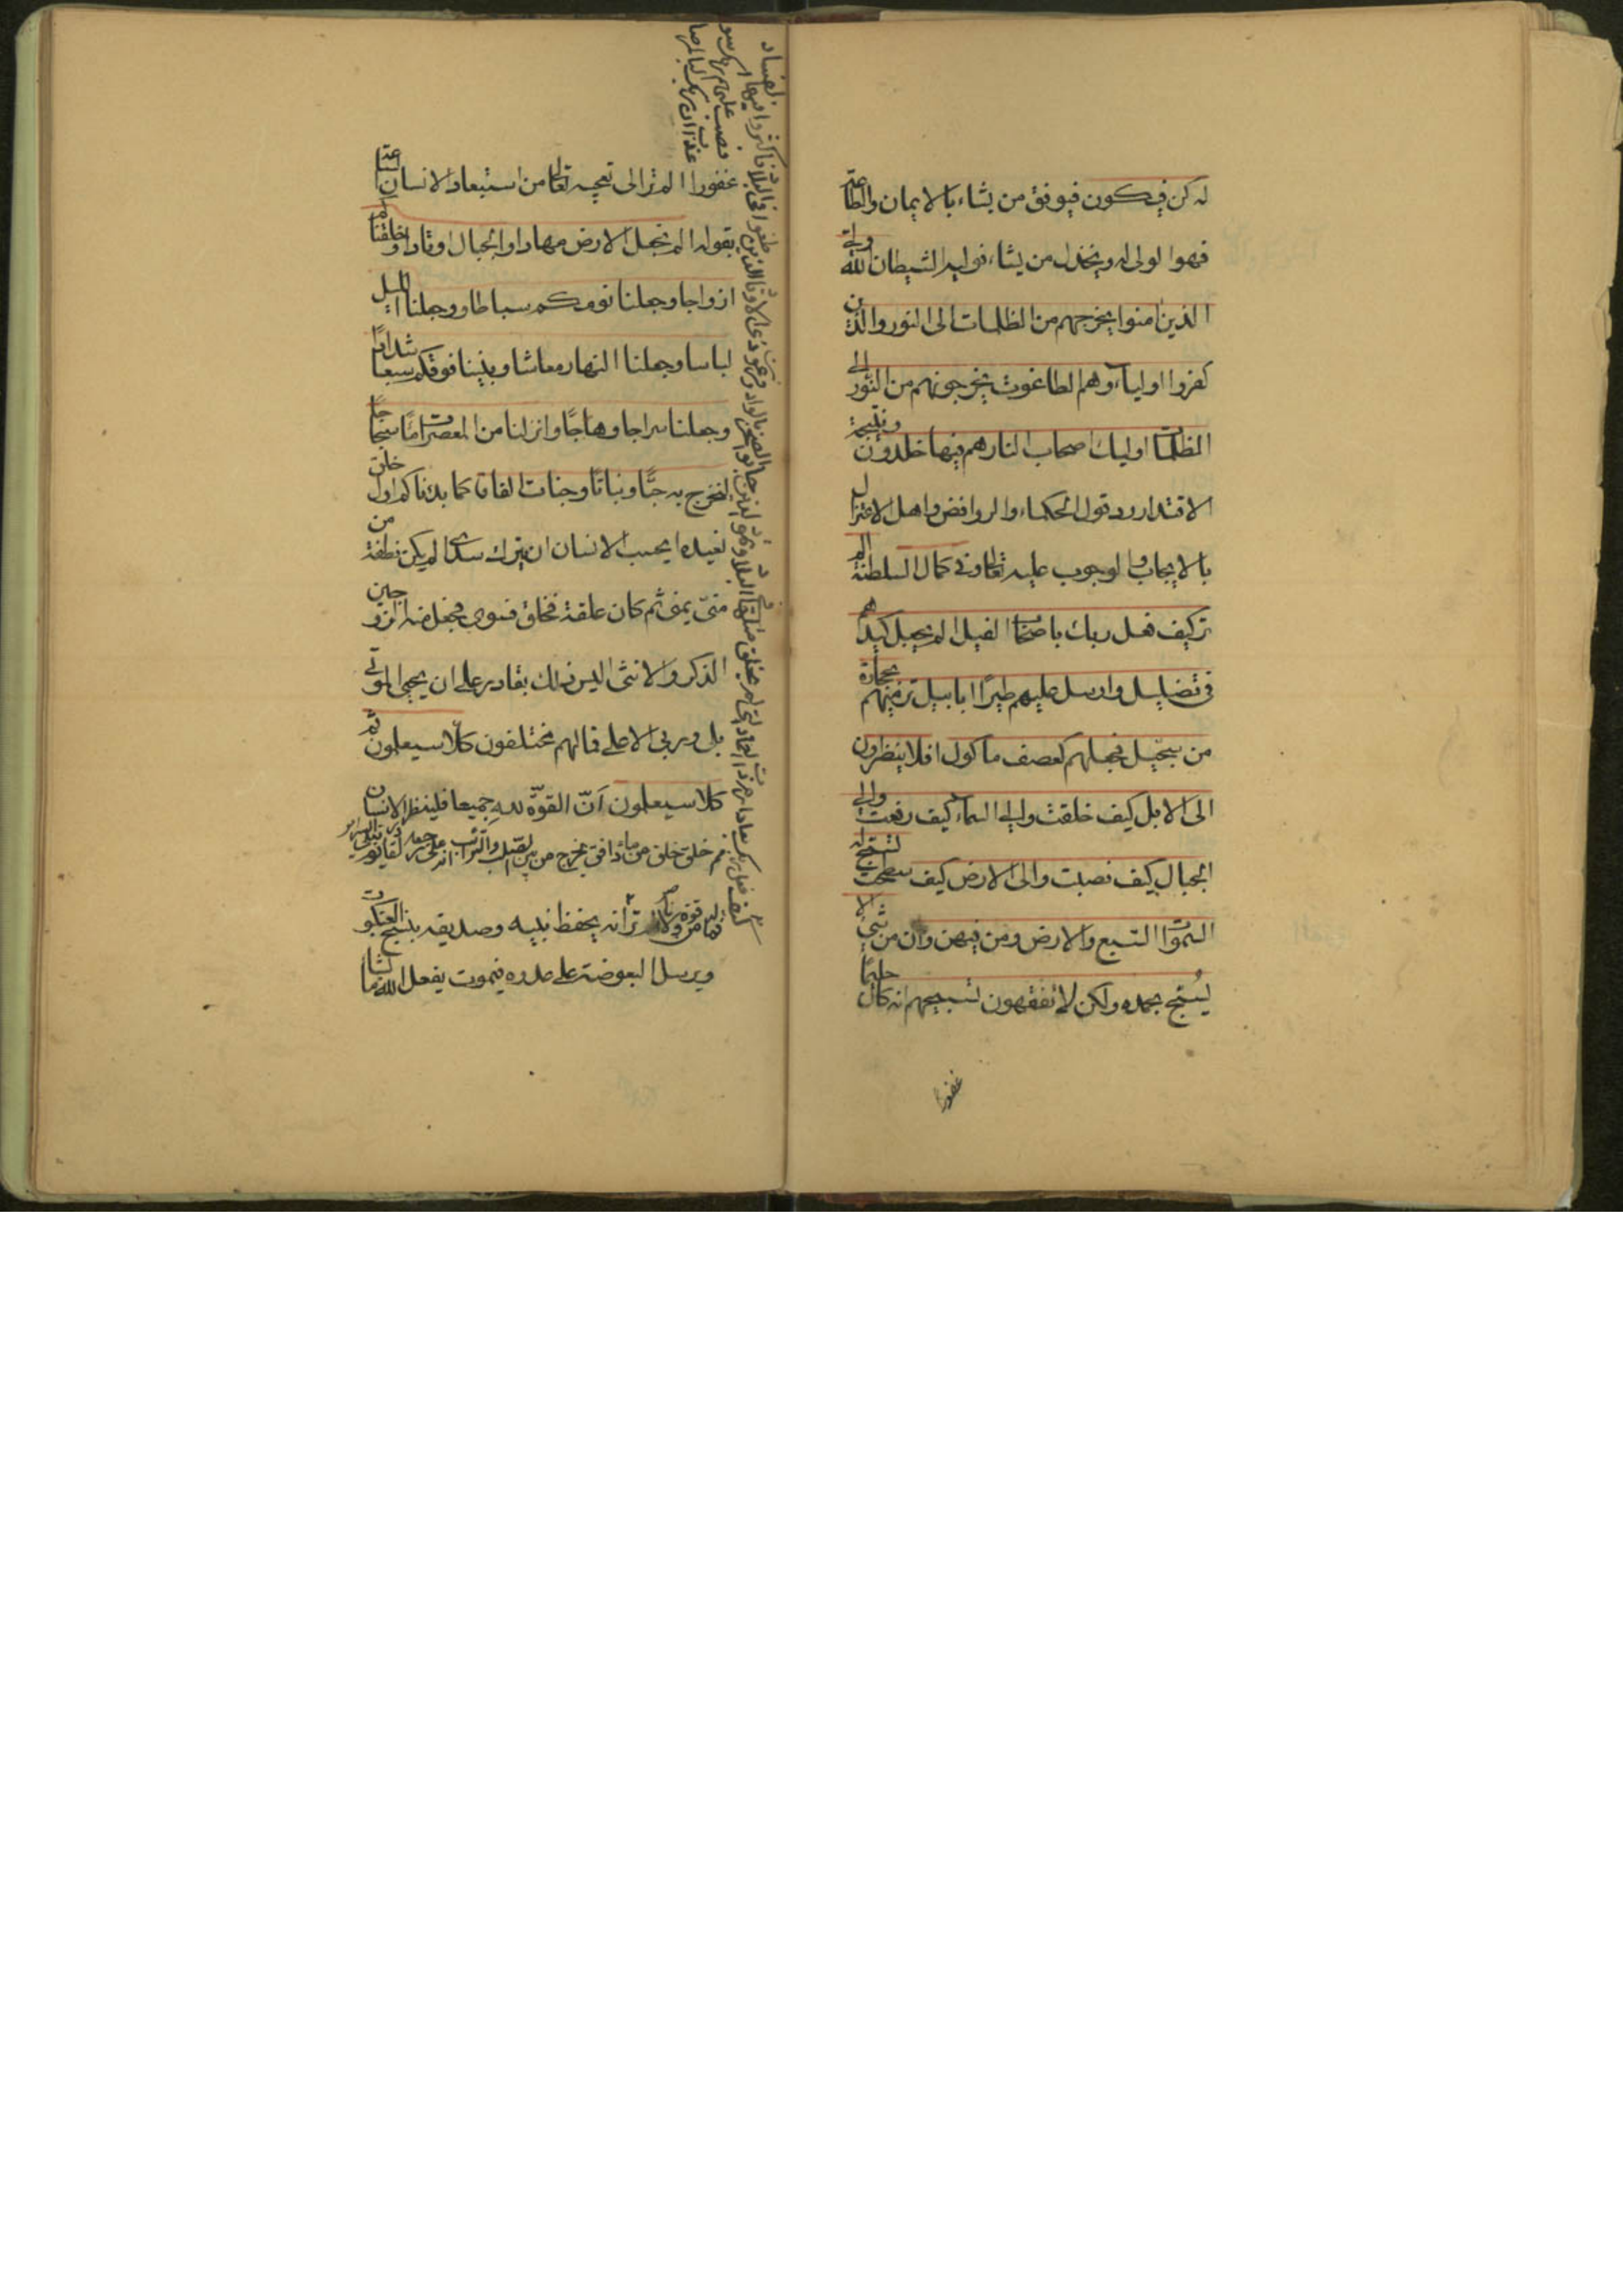 له كن فيكون فيوفق من يشاء بالايمان والطاعة
فهوا لولى له ويخذل من يشاء فوليه الشيطان الله ولى
الذين امنوا يخرجهم من الظلمات الى النور والذين
كفروا اولياؤهم الطاغوت يخرجونهم من النور الى
الظلمات اوليك اصحاب النار هم فيها خلدون ونتيجة
الاقتدار رد قول الحكماء والروافض واهل الاعتزال
بالايجاب والوجوب عليه تعالى وفى كمال السلطنة الم
تر كيف فعل ربك باصحاب الفيل الم يجعل كيدهم
فى تضليل وارسل عليهم طيرًا ابابيل ترميهم بحجارة
من سجيل فجعلهم كعصف ماكول افلا ينظرون
الى الابل كيف خلقت والى السماء كيف رفعت والى
الجبال كيف نصبت والى الارض كيف سطحت تسبح له
السموات السبع والارض ومن فيهن وان من شئ الا
يسبح بحمده ولكن لا تفقهون تسبيحهم انه كان حليما
غفورا
غفورا الم تر الى تعجبه تعالى من استبعاد الانسان
بقوله الم نجعل الارض مهادا والجبال اوتادا وخلقناكم
ازواجا وجعلنا نومكم سباطا وجعلنا اليل
لباسا وجعلنا النهار معاشا وبنينا فوقكم سبعا شدادًا
وجعلنا سراجا وهاجًا وانزلنا من المعصرات مًا ثجاجًا
لنخرج به حبًّا ونباتًا وجنات الفافا كما بدنا كم اول خلق
نعيده ايحسب الانسان ان يترك سدى الم يكن نطفة من
منىّ يمنى ثم كان علقة فخلق فسوى فجعل منه الزوجين
الذكر والانثى اليس ذلك بقادر على ان يحيى الموتى
بلى وربى الاعلى فالهم مختلفون كلا سيعلون ثم
كلا سيعلون اَنّ القوّة للهِ جميعا فلينظر الانسان
مم خلق خلق من ماء دافق يخرج من بين الصلب والترائب انه على رجعه لقادر يوم تبلى السرائر
فما له من قوة ولا ناصر تر انه يحفظ نبيه وصديقه بنسج العنكبوت
ويرسل البعوضة على صدره فيموت يفعل الله ما يشا
كيف فعل ربك بعاد ارم ذات العماد التى لم يخلق مثلها فى البلاد وثمود الذين جابوا الصخر بالواد وفرعون ذى الاوتاد الذين طغوا فى البلاد فاكثروا فيها الفساد
فصب عليهم ربك سو
عذاب ان ربك لبالمرصا